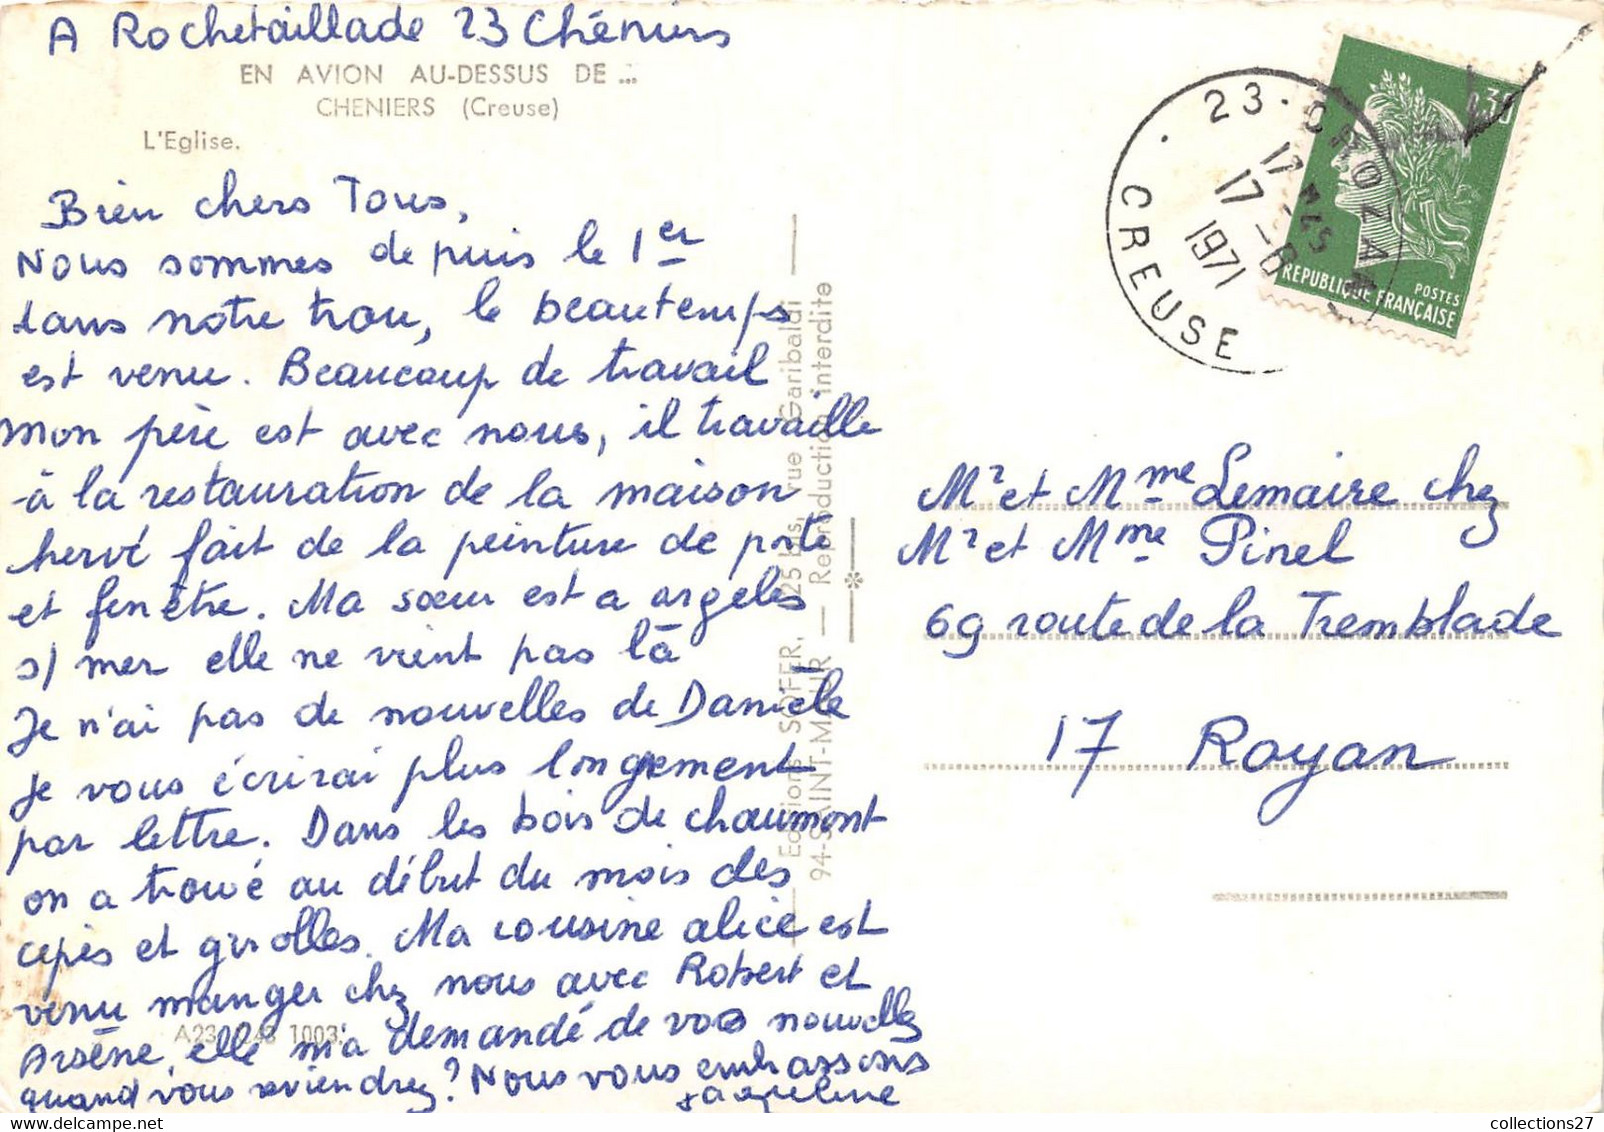 A Rochetaillade 23 Chéniers
EN AVION AU-DESSUS DE ...
CHENIERS (Creuse)
L'Eglise.
Bien chers Tous,
Nous sommes depuis le 1er
dans notre trou, le beau temps
est venu. Beaucoup de travail
mon père est avec nous, il travaille
à la restauration de la maison
hervé fait de la peinture de porte
et fenêtre. Ma sœur est a argeles
s/ mer elle ne vient pas là
Je n'ai pas de nouvelles de Danièle
je vous écrirai plus longement
par lettre. Dans les bois de chaumont
on a trouvé au début du mois des
cepès et girolles. Ma cousine alice est
venu manger chez nous avec Robert et
Arsène, elle m'a demandé de vos nouvelles
quand vous reviendrez? Nous vous embrassons
Jacqueline
A23 243 1003
Editions SOFER, 25 bis, rue Garibaldi
94-SAINT-MAUR — Reproduction interdite
23 - CROZANT
17 H 45
17 -6
1971
CREUSE
0,30
POSTES
REPUBLIQUE FRANÇAISE
Mr et Mme Lemaire chez
Mr et Mme Pinel
69 route de la Tremblade
17 Royan
collections27